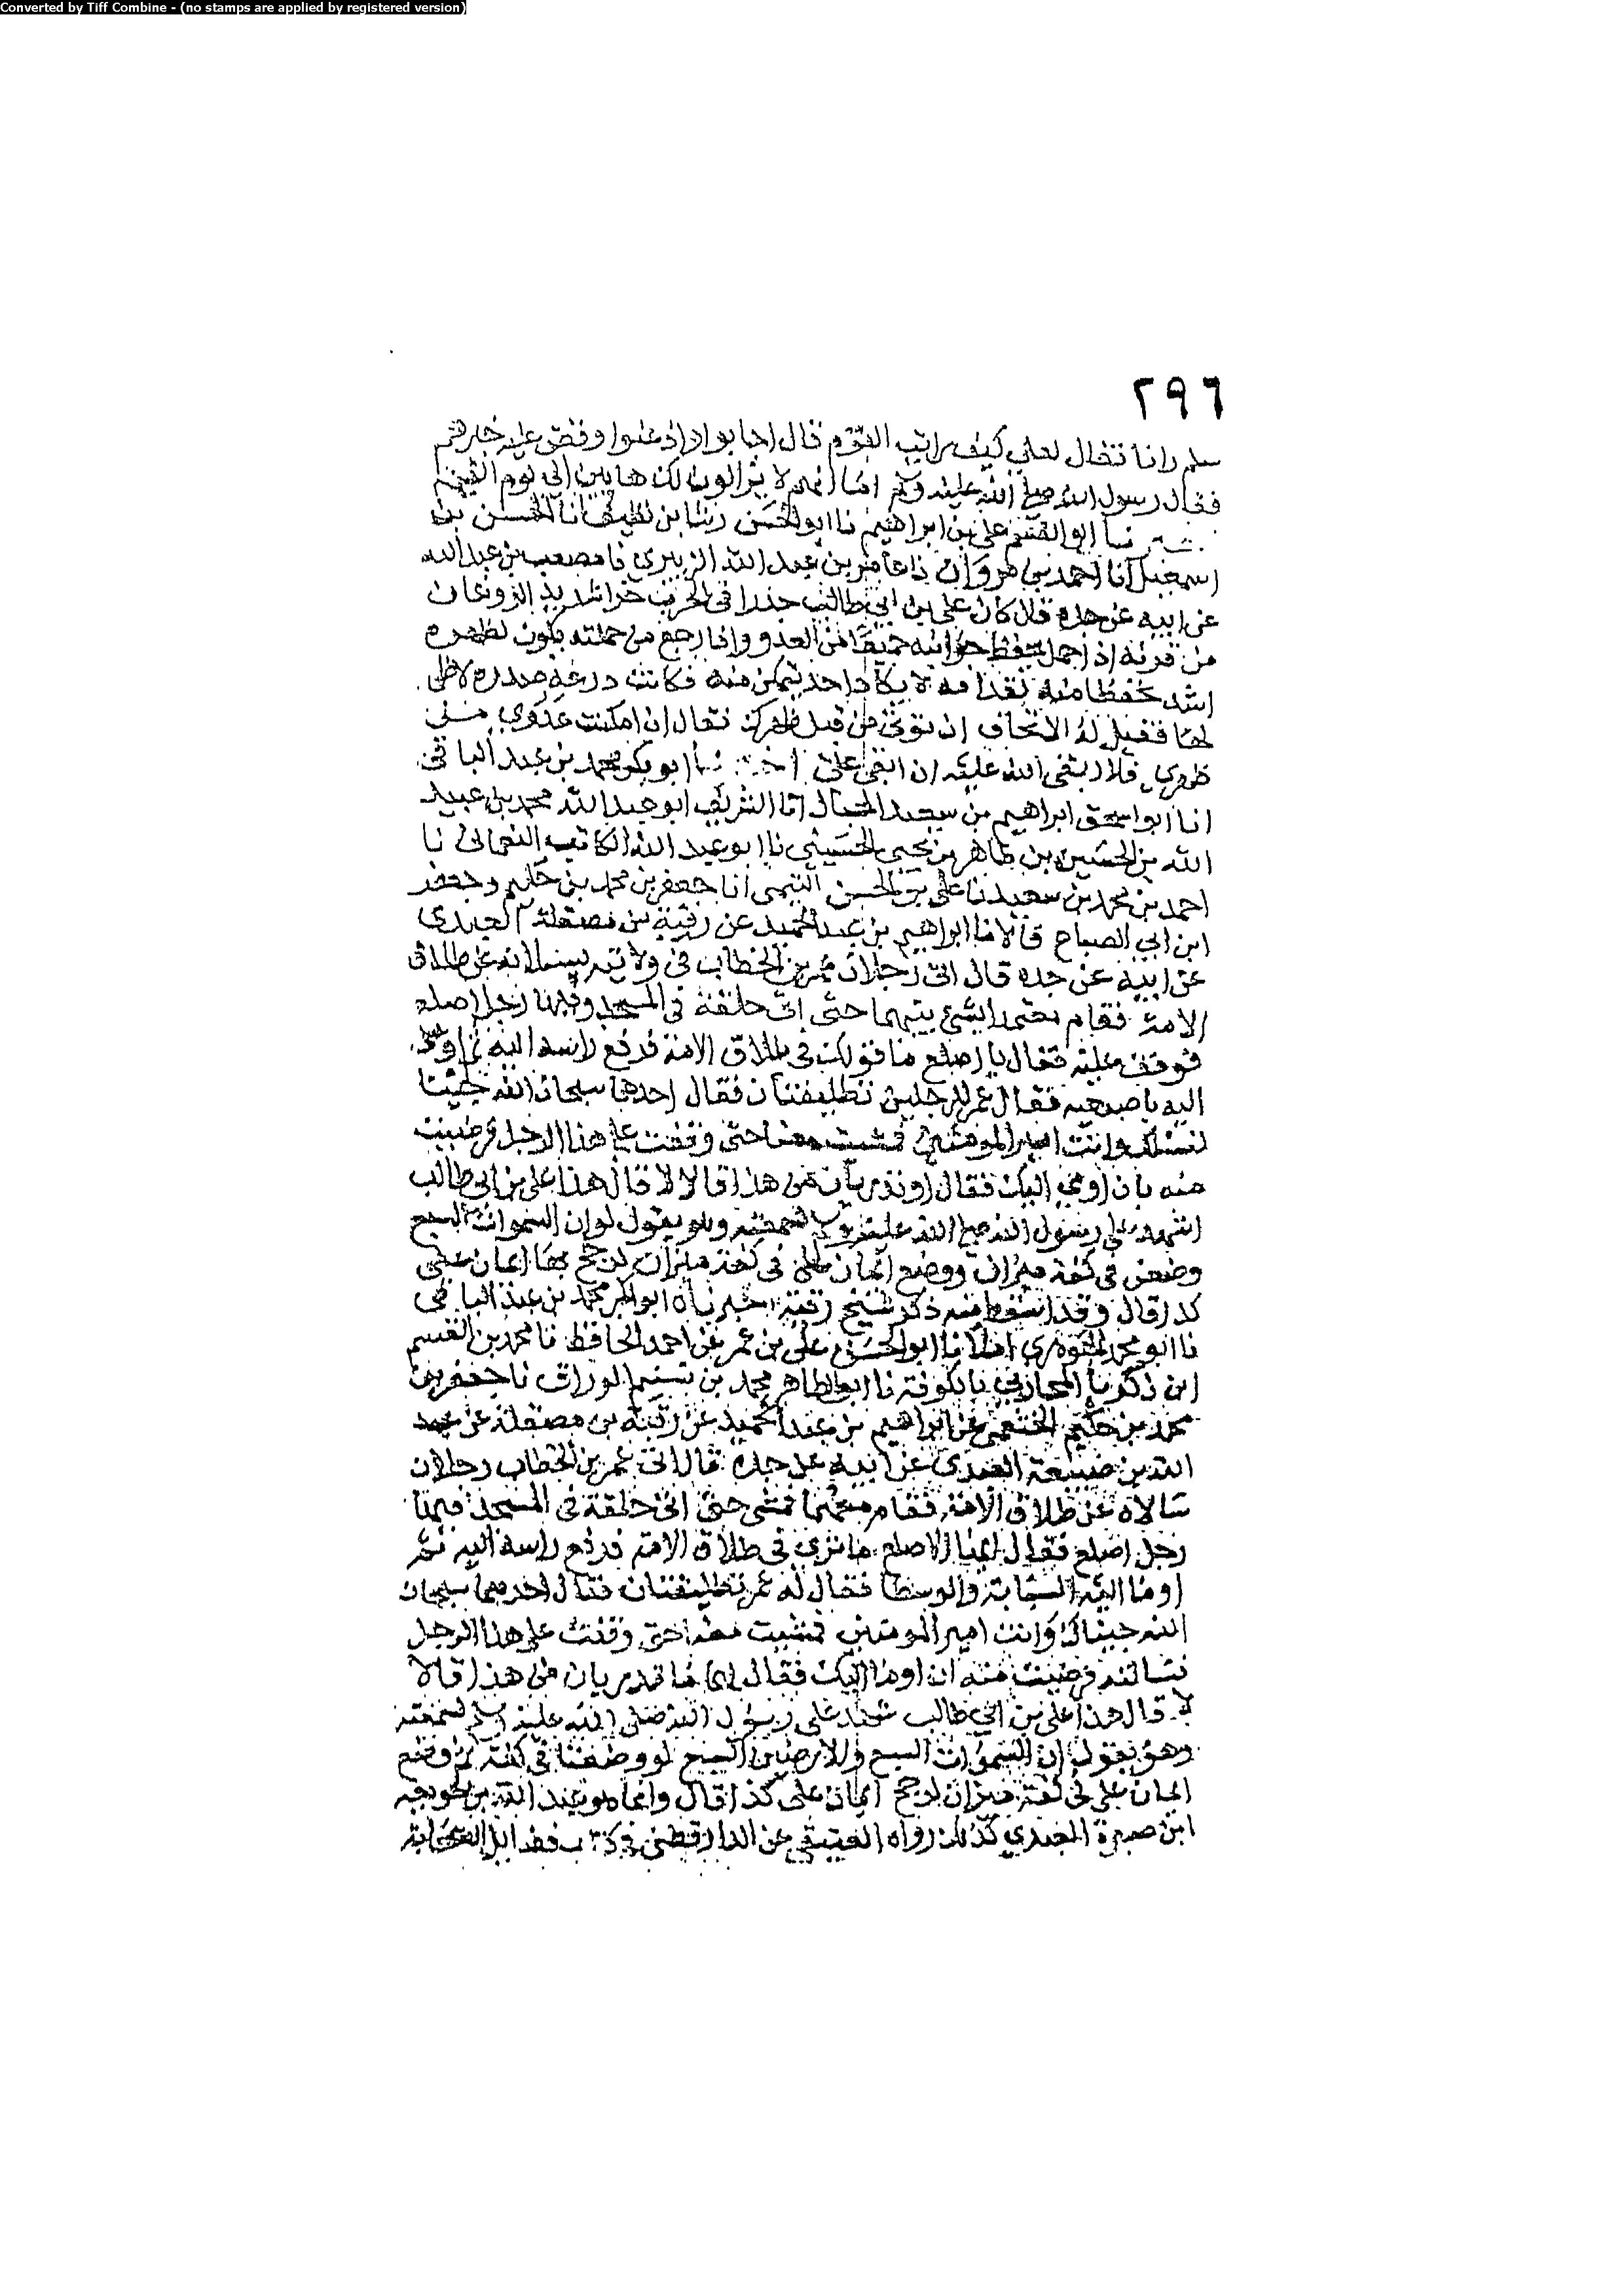 Converted by Tiff Combine - (no stamps are applied by registered version)
٢٩٦
سلم وانا فقال لعلي كيف رايت القوم قال اجابوا اذ دعوا وقص عليه خبرهم
فقال رسول الله صلى الله عليه وسلم اما انهم لا يزالون لك هايبين الى يوم القيمة
نا ابو القسم علي بن ابراهيم نا ابو الحسن رشا بن نظيف انا الحسن بن
اسمعيل انا احمد بن مروان نا عامر بن عبد الله الزبيري نا مصعب بن عبد الله
عن ابيه عن جده قال كان علي بن ابي طالب حذرا في الحرب شديد الروغان
من قرنه اذا حمل يحفظ جوانبه جميعا من العدو واذا رجع من حملته يكون لظهره
اشد تحفظا منه لقدامه لا يكاد احد يتمكن منه فكانت درعه صدرة لا ظهر
لها فقيل له الا تخاف ان توتى من قبل ظهرك فقال ان امكنت عدوي من
ظهري فلا ابقى الله عليه ان ابقى علي ابو بكر محمد بن عبد الباقي
انا ابو اسحق ابراهيم بن سعيد الحبال انا الشريف ابو عبد الله محمد بن عبيد
الله بن الحسين بن طاهر بن يحيى الحسيني نا ابو عبد الله الكاتب النعماني نا
احمد بن محمد بن سعيد نا علي بن الحسن التيمي انا جعفر بن محمد بن حكيم وجعفر
ابن ابي الصباح قالا نا ابراهيم بن عبد الحميد عن رقبة بن مصقلة العبدي
عن ابيه عن جده قال اتى رجلان عمر بن الخطاب في ولايته يسئلانه عن طلاق
الامة فقام معتمدا بشي بينهما حتى اتى حلقة في المسجد وفيها رجل اصلع
فوقف عليه فقال يا اصلع ما قولك في طلاق الامة فرفع راسه اليه ثم اومى
اليه باصبعيه فقال عمر للرجلين تطليقتان فقال احدهما سبحان الله جينا
لنسئلك وانت امير المومنين فمشيت معنا حتى وقفت على هذا الرجل فرضيت
منه بان اومى اليك فقال او تدريان من هذا قالا لا قال هذا علي بن ابي طالب
اشهد على رسول الله صلى الله عليه وسلم لسمعته وهو يقول لو ان السموات السبع
وضعن في كفة ميزان ووضع ايمان علي في كفة ميزان لرجح بها ايمان علي
كذا قال وقد اسقط منه ذكر شيخ رقبة اخبرناه ابو بكر محمد بن عبد الباقي
نا ابو محمد الجوهري املا نا ابو الحسن علي بن عمر بن احمد الحافظ نا محمد بن القسم
ابن زكريا المحاربي بالكوفة نا ابو الطاهر محمد بن تسنيم الوراق نا جعفر بن
محمد بن حكيم الخثعمي عن ابراهيم بن عبد الحميد عن رقبة بن مصقلة عن عبد
الله بن ضبيعة العبدي عن ابيه عن جده قال اتى عمر بن الخطاب رجلان
سالاه عن طلاق الامة فقام معهما فمشى حتى اتى حلقة في المسجد فيها
رجل اصلع فقال ايها الاصلع ما ترى في طلاق الامة فرفع راسه اليه ثم
اوما اليه السبابة والوسطا فقال له عمر تطليقتان فقال احدهما سبحان
الله جيناك وانت امير المومنين فمشيت معنا حتى وقفت على هذا الرجل
فسالته فرضيت منه ان اوما اليك فقال لهما ما تدريان من هذا قالا
لا قال هذا علي بن ابي طالب شهد على رسول الله صلى الله عليه وسلم لسمعته
وهو يقول ان السموات السبع والارضين السبع لو وضعتا في كفة ثم وضع
ايمان علي في كفة ميزان لرجح ايمان علي كذا قال وانما هو عبد الله بن خوتعة
ابن صبرة العبدي كذلك رواه العتيقي عن الدارقطني في كتاب فضايل الصحابة